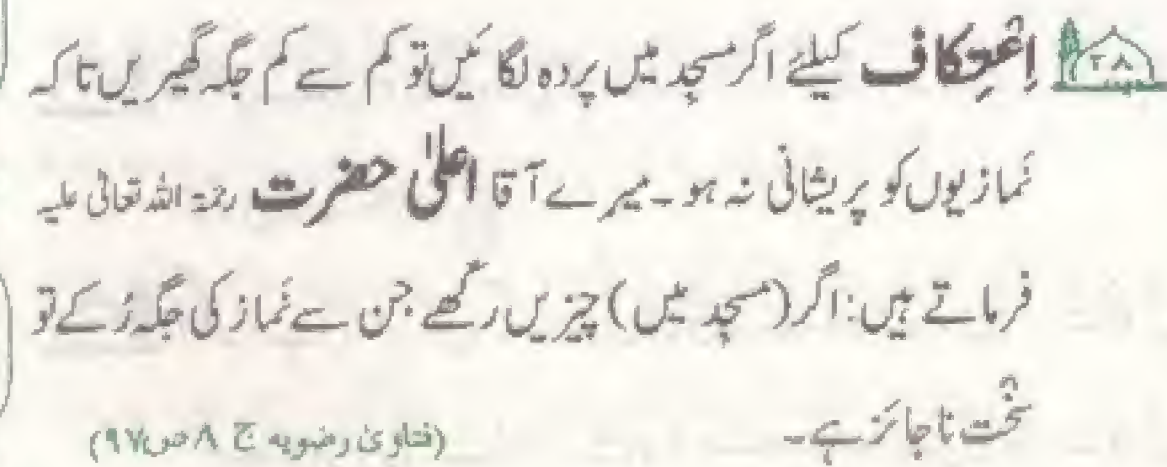 ﴿۲۸﴾ اِعْتِکاف کیلئے اگر مسجِد میں پردہ لگائیں تو کم سے کم جگہ گھیریں تاکہ
نَمازیوں کو پریشانی نہ ہو۔ میرے آقا اعلیٰ حضرت رحمۃ اللہ تعالیٰ علیہ
فرماتے ہیں: اگر (مسجِد میں) چیزیں رکھے جن سے نَماز کی جگہ رُکے تو
سَخْت ناجائز ہے۔ (فتاویٰ رضویہ ج ۸ ص ۹۷)